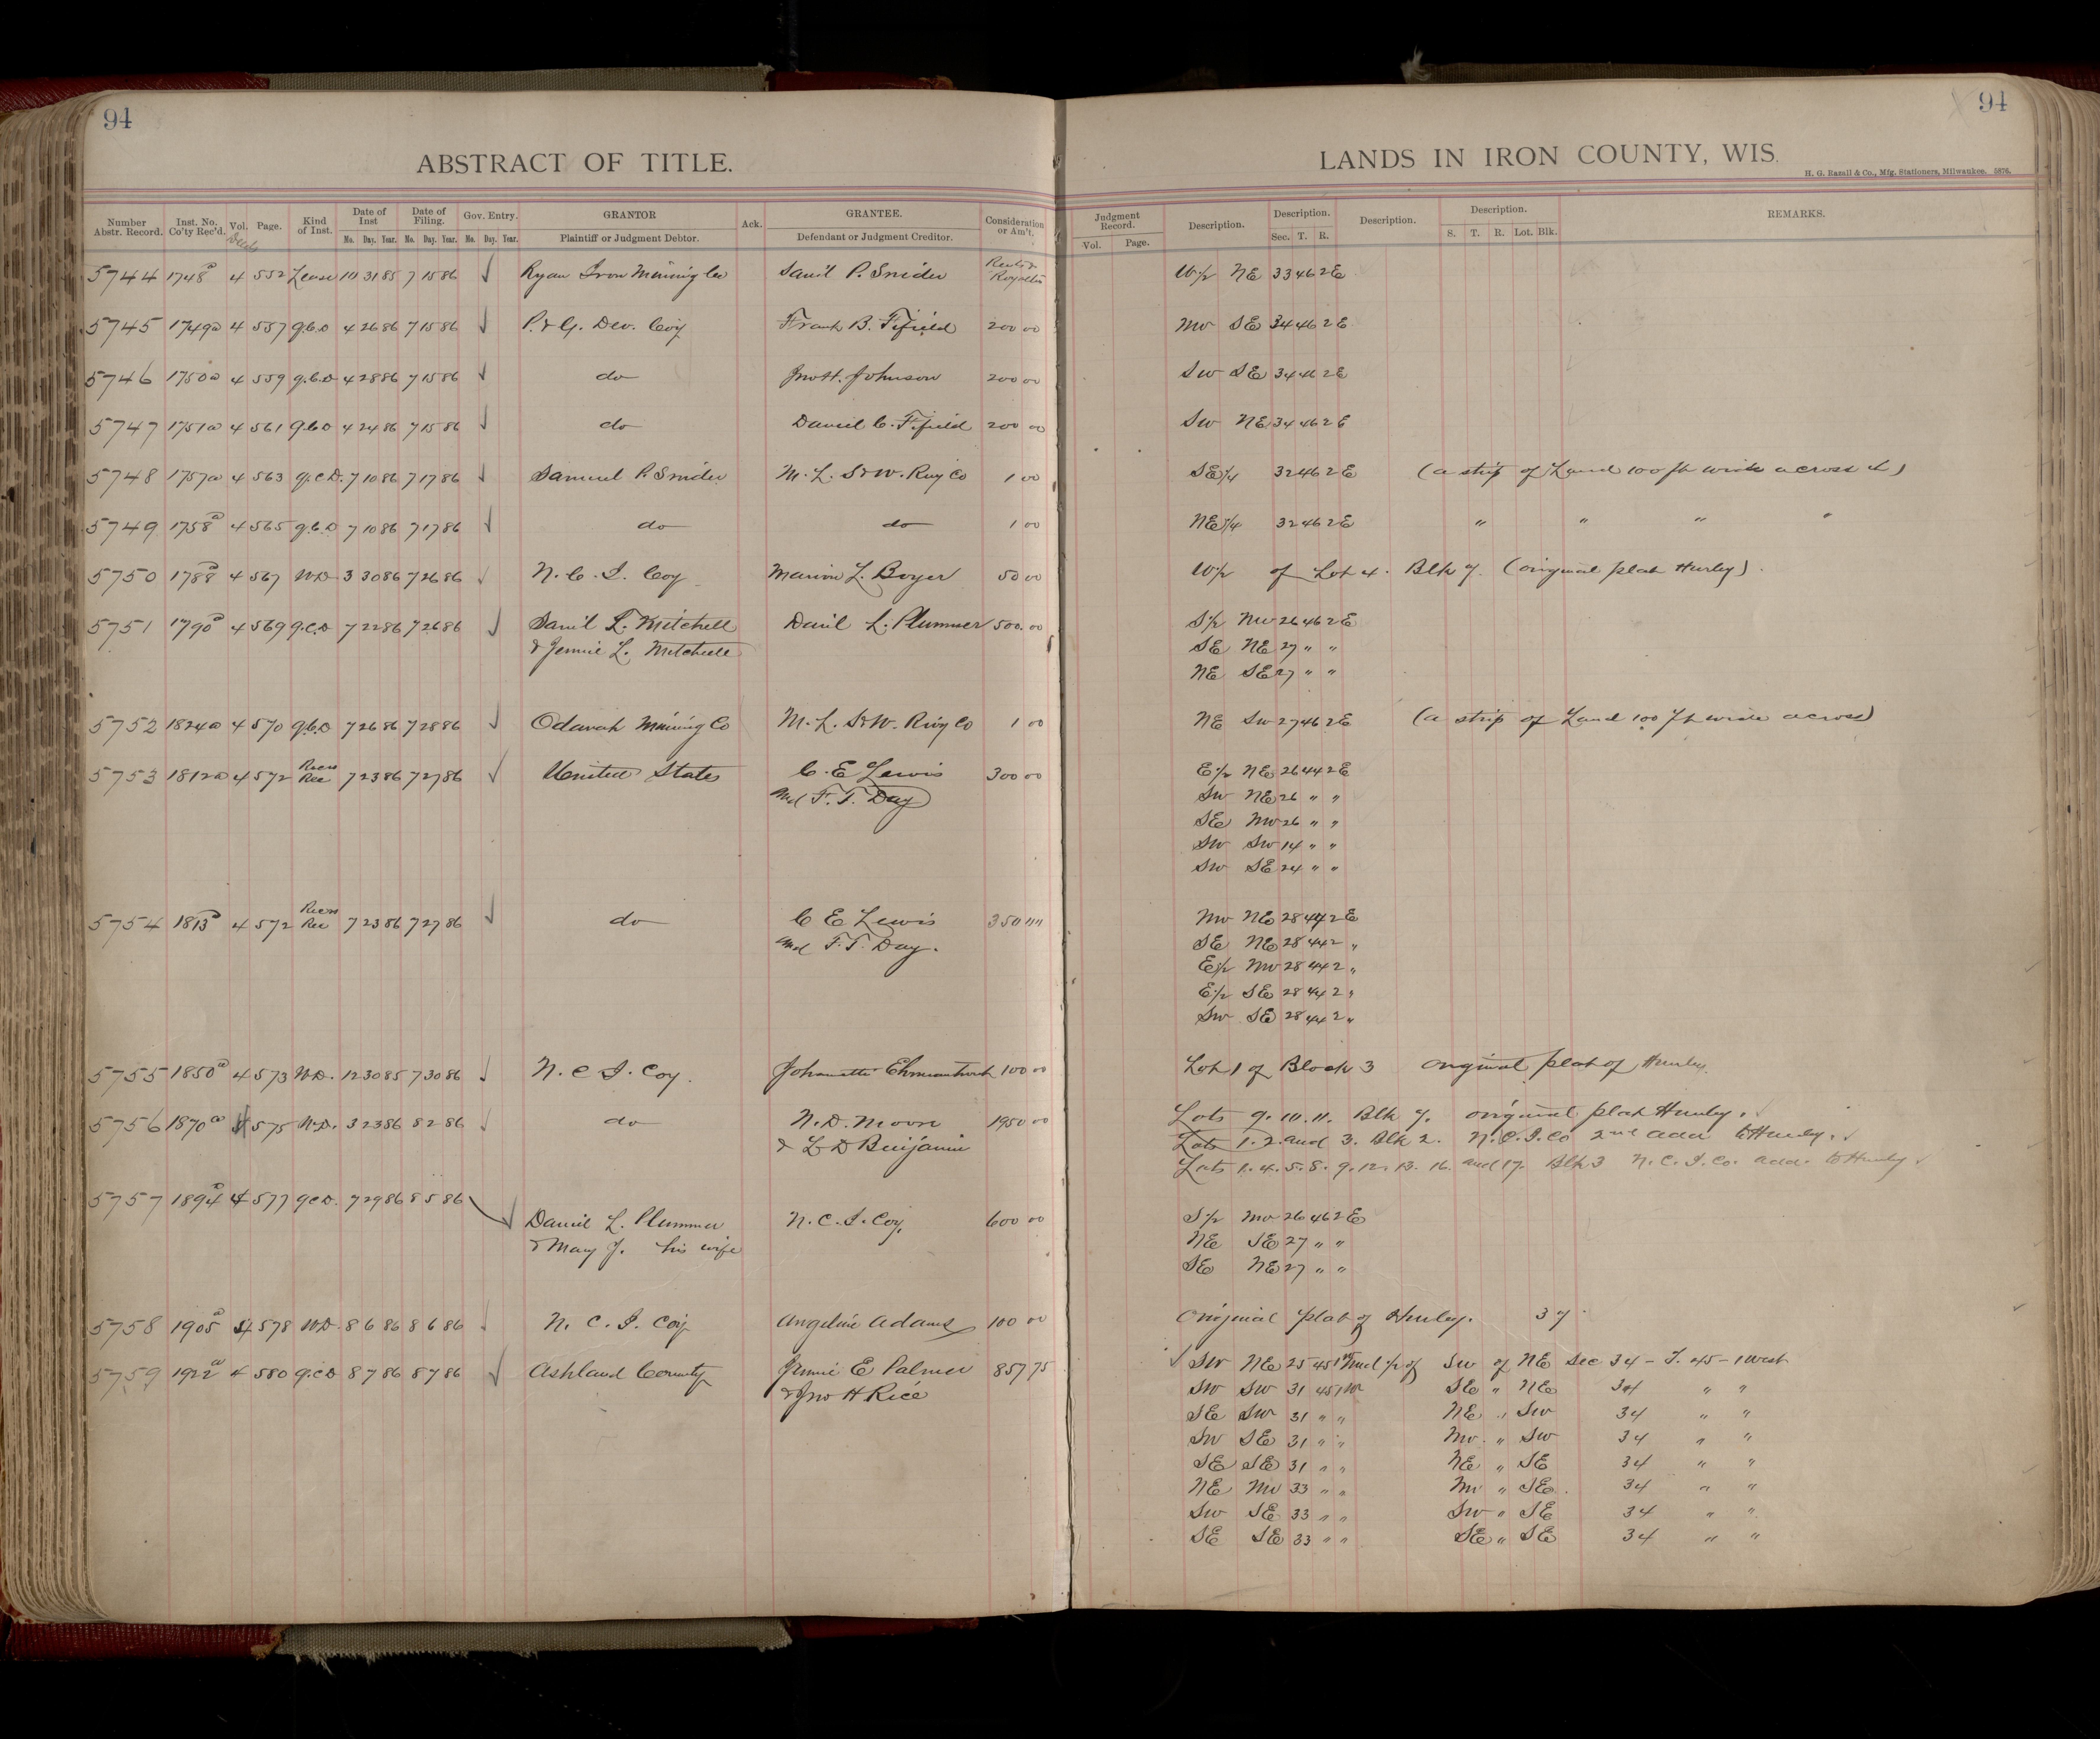 94
94
ABSTRACT OF TITLE.
LANDS IN IRON COUNTY, WIS.
H. G. Razall & Co., Mfg. Stationers, Milwaukee. 5876.
Number Abstr. Record. Inst. No. Co'ty Rec'd. Vol. Page. Kind of Inst. Date of Inst Date of Filing. Gov. Entry. GRANTOR Ack. GRANTEE. Consideration or Am't. Judgment Record. Description. Description. Description. Description. REMARKS.
Deeds Mo. Day. Year. Mo. Day. Year. Mo. Day. Year. Plaintiff or Judgment Debtor. Defendant or Judgment Creditor. Vol. Page. Sec. T. R. S. T. R. Lot. Blk.
5744 1748a 4 552 Lease 10 31 85 7 15 86 √ Ryan Iron Mining Co Saml P. Snider Rents & Royalties W½ NE 33 46 2E
5745 1749a 4 557 q.c.D 4 26 86 7 15 86 √ P. & G. Dev. Coy Frank B. Fifield 200 00 NW SE 34 46 2E
5746 1750a 4 559 q.c.D 4 28 86 7 15 86 √ do Jno H. Johnson 200 00 SW SE 34 46 2E
5747 1751a 4 561 q.c.D 4 24 86 7 15 86 √ do Daniel C. Fifield 200 00 SW NE 34 46 2E
5748 1757a 4 563 q.c.D. 7 10 86 7 17 86 √ Samuel P. Snider M. L. S & W. Rwy Co 1 00 SE¼ 32 46 2E (a strip of Land 100 ft wide across it)
5749 1758a 4 565 q.c.D 7 10 86 7 17 86 √ do do 1 00 NE¼ 32 46 2E " " " "
5750 1788a 4 567 W.D 3 30 86 7 26 86 √ N. C. I. Coy Marion L. Boyer 50 00 W½ of Lot 4. Blk 7. (original plat Hurley).
5751 1790a 4 569 q.c.D 7 22 86 7 26 86 √ Saml L. Mitchell Danl L. Plummer 500.00 S½ NW 26 46 2E
& Jennie L. Mitchell SE NE 27 " "
NE SE 27 " "
5752 1824a 4 570 q.c.D 7 26 86 7 28 86 √ Odanah Mining Co M. L. S & W. Rwy Co 1 00 NE SW 27 46 2E (a strip of Land 100 ft wide across)
5753 1812a 4 572 Recrs Rec 7 23 86 7 27 86 √ United States C. E Lewis 300 00 E½ NE 26 44 2E
and F. T. Day SW NE 26 " "
SE NW 26 " "
SW SW 14 " "
SW SE 24 " "
5754 1813a 4 572 Recrs Rec 7 23 86 7 27 86 √ do C E Lewis 350 00 NW NE 28 44 2E
and F. T. Day. SE NE 28 44 2 "
E½ NW 28 44 2 "
E½ SE 28 44 2 "
SW SE 28 44 2 "
5755 1850a 4 573 W.D. 12 30 85 7 30 86 √ N. C I. Coy. 100 00 Lot 1 of Block 3 Original plat of Hurley.
5756 1870a 4 575 W.D. 3 23 86 8 2 86 √ do N. D. Moore 1950 00 Lots 9. 10. 11. Blk 7. original plat Hurley. √
& L D Benjamin Lots 1. 2. and 3. Blk 2. N. C. I. Co 2nd add to Hurley. √
Lots 1. 4. 5. 8. 9. 12. 13. 16. and 17. Blk 3 N. C. I. Co. add. to Hurley √
5757 1894a 4 577 q.c.D. 7 29 86 8 5 86 √ Daniel L. Plummer N. C. I. Coy. 600 00 S½ NW 26 46 2E
& Mary J. his wife NE SE 27 " "
SE NE 27 " "
5758 1905a 4 578 W.D 8 6 86 8 6 86 √ N. C. I. Coy Angeline Adams 100 00 Original plat of Hurley. 3 7
5759 1922a 4 580 q.c.D 8 7 86 8 7 86 √ Ashland County Jennie E Palmer 857.75 √ SW NE 25 45 1W und ½ of SW of NE Sec 34 - T. 45 - 1 West
& Jno H Rice SW SW 31 45 1W SE " NE 34 " "
SE SW 31 " " NE " SW 34 " "
SW SE 31 " " NW " SW 34 " "
SE SE 31 " " NE " SE 34 " "
NE NW 33 " " NW " SE. 34 " "
SW SE 33 " " SW " SE 34 " "
SE SE 33 " " SE " SE 34 " "